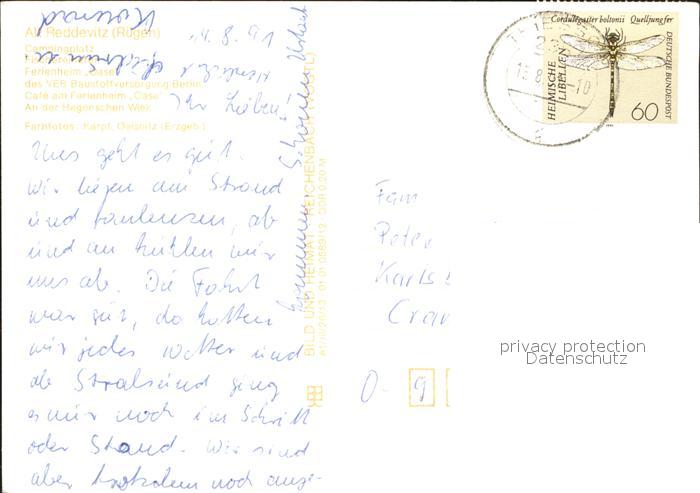 Alt Reddevitz (Rügen)
Campingplatz
Ferienheim „Case“
des VEB Baustoffversorgung Berlin
Café am Ferienheim „Case“
An der Hagenschen Wiek
Farbfotos: Karpf, Oelsnitz (Erzgeb.)
14.8.91
Ihr Lieben!
Uns geht es gut.
Wir liegen am Strand
und faulenzen, ab
und an kühlen wir
uns ab. Die Fahrt
war gut, da hatten
wir jedes Wetter und
ab Stralsund ging
es nur noch im Schritt
oder Stand. Wir sind
aber trotzdem noch ange-
kommen. Schönen Urlaub
Konrad
BILD UND HEIMAT REICHENBACH (VOGTL)
01 01 0669/12 DDR 0,20 M
Cordulegaster boltonii Quelljungfer
HEIMISCHE
LIBELLEN
DEUTSCHE BUNDESPOST
60
Fam
Peter
Karls
Cran
O- 9
privacy protection
Datenschutz